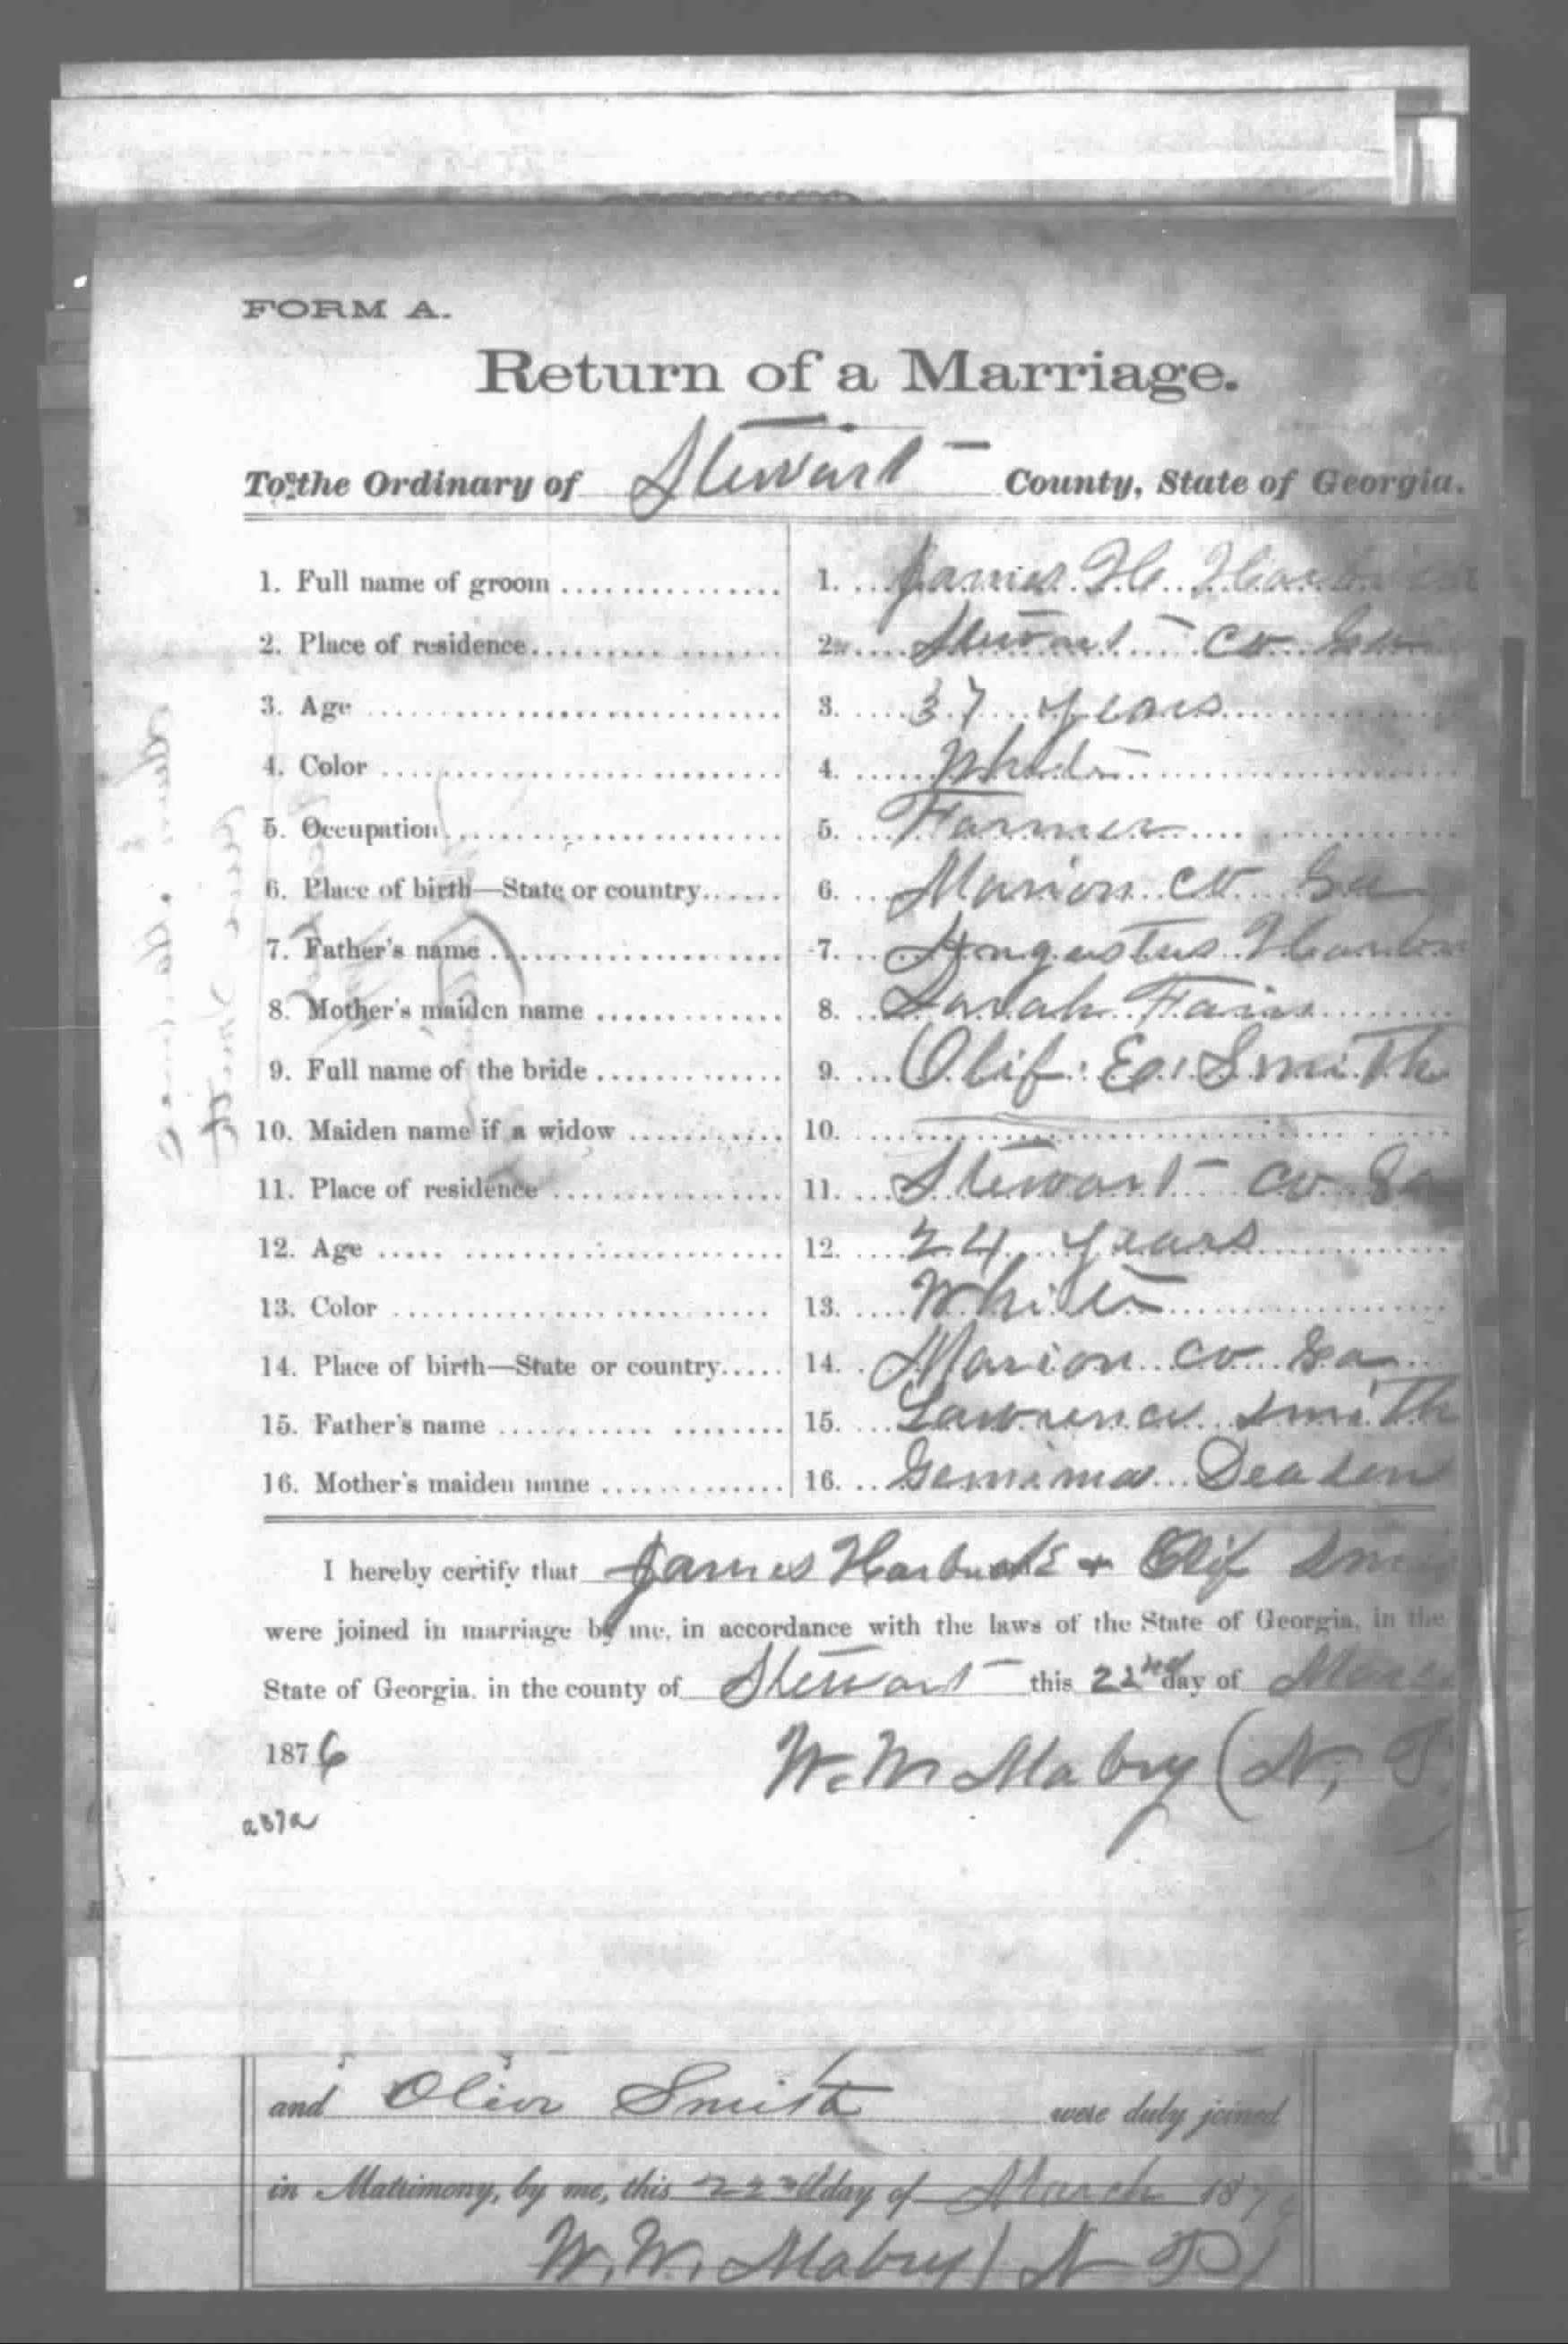 FORM A.
Return of a Marriage.
To the Ordinary of Stewart County, State of Georgia.
1. Full name of groom 1. James H.
2. Place of residence 2. Stewart Co Ga
3. Age 3. 37 years
4. Color 4. White
5. Occupation 5. Farmer
6. Place of birth—State or country 6. Marion Co Ga
7. Father's name 7. Angustus
8. Mother's maiden name 8. Sarah Fair
9. Full name of the bride 9. Olif E. Smith
10. Maiden name if a widow 10.
11. Place of residence 11. Stewart Co Ga
12. Age 12. 24 years
13. Color 13. White
14. Place of birth—State or country 14. Marion Co Ga
15. Father's name 15. Lawrence Smith
16. Mother's maiden name 16. Gemima
I hereby certify that James Harbuck & Olif
were joined in marriage by me, in accordance with the laws of the State of Georgia, in the
State of Georgia, in the county of Stewart this 22nd day of
1876 W. W. Mabry (N,
and Oliver Smith were duly joined
in Matrimony, by me, this 22nd day of March 187
W. W. Mabry (N P)